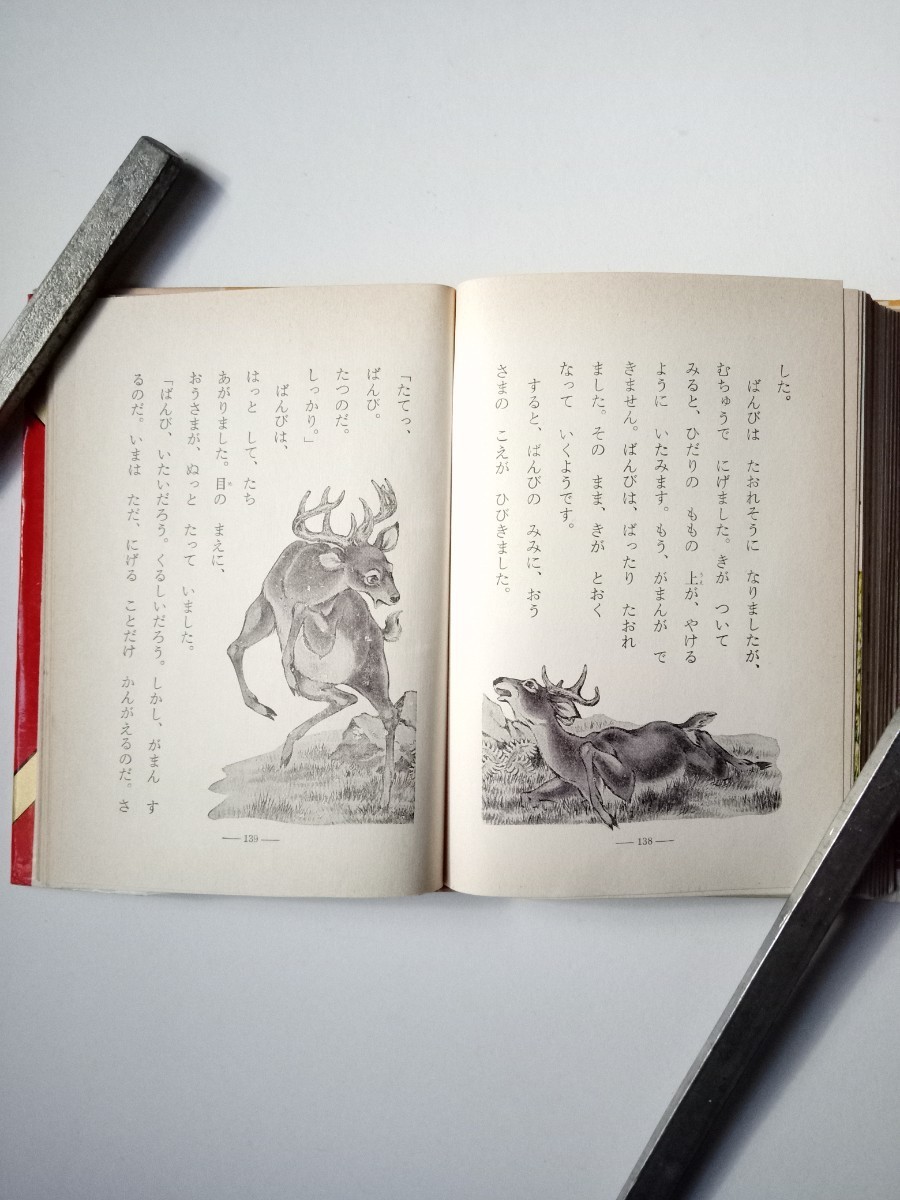 した。
ばんびは　たおれそうに　なりましたが、
むちゅうで　にげました。きが　ついて
みると、ひだりの　ももの　上が、やける
うえ
ように　いたみます。もう、がまんが　で
きません。ばんびは、ばったり　たおれ
ました。その　まま、きが　とおく
なって　いくようです。
すると、ばんびの　みみに、おう
さまの　こえが　ひびきました。
138
「たてっ、
ばんび。
たつのだ。
しっかり。」
ばんびは、
はっと　して、たち
あがりました。目の　まえに、
め
おうさまが、ぬっと　たって　いました。
「ばんび、いたいだろう。くるしいだろう。しかし、がまん　す
るのだ。いまは　ただ、にげる　ことだけ　かんがえるのだ。さ
139